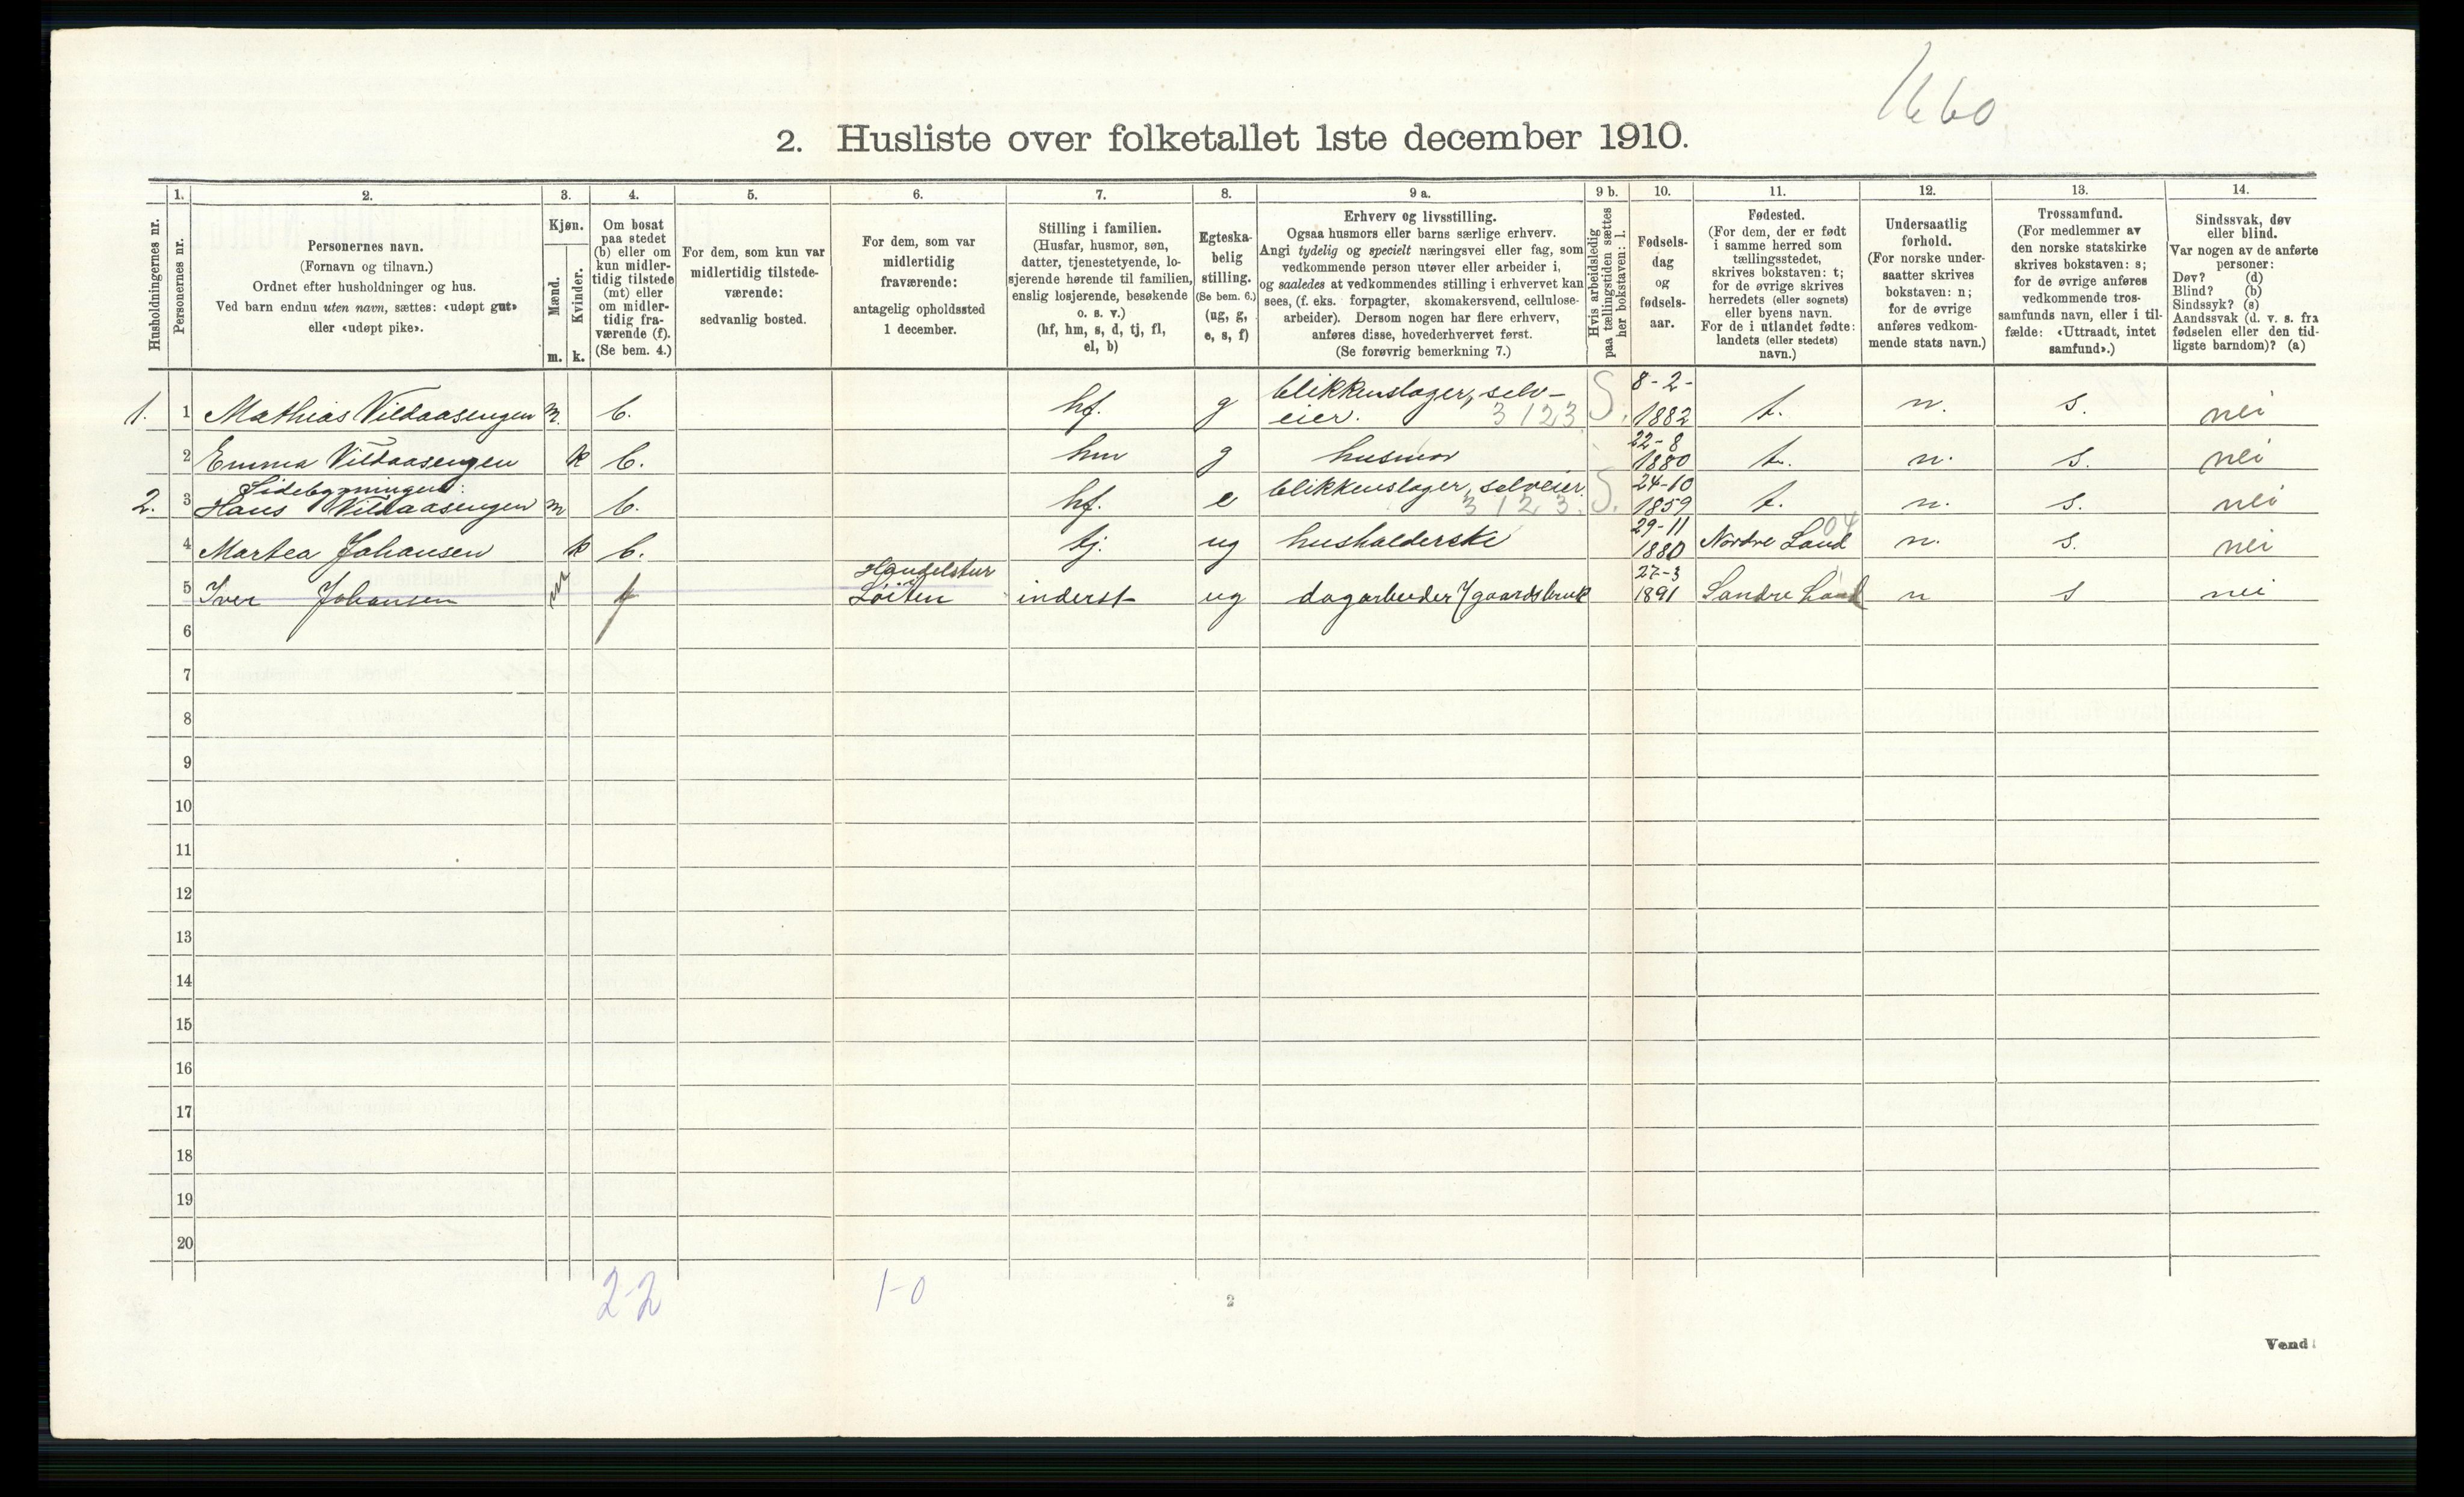 1660
2. Husliste over folketallet 1ste december 1910.
Husholdningernes nr.
1.
Personernes nr.
2.
Personernes navn.
(Fornavn og tilnavn.)
Ordnet efter husholdninger og hus.
Ved barn endnu uten navn, sættes: «udøpt gut»
eller «udøpt pike».
3.
Kjøn.
Mænd.
Kvinder.
m. k.
4.
Om bosat
paa stedet
(b) eller om
kun midler-
tidig tilstede
(mt) eller
om midler-
tidig fra-
værende (f).
(Se bem. 4.)
5.
For dem, som kun var
midlertidig tilstede-
værende:
sedvanlig bosted.
6.
For dem, som var
midlertidig
fraværende:
antagelig opholdssted
1 december.
7.
Stilling i familien.
(Husfar, husmor, søn,
datter, tjenestetyende, lo-
sjerende hørende til familien,
enslig losjerende, besøkende
o. s. v.)
(hf, hm, s, d, tj, fl,
el, b)
8.
Egteska-
belig
stilling.
(Se bem. 6.)
(ug, g,
e, s, f)
9 a.
Erhverv og livsstilling.
Ogsaa husmors eller barns særlige erhverv.
Angi tydelig og specielt næringsvei eller fag, som
vedkommende person utøver eller arbeider i,
og saaledes at vedkommendes stilling i erhvervet kan
sees, (f. eks. forpagter, skomakersvend, cellulose-
arbeider). Dersom nogen har flere erhverv,
anføres disse, hovederhvervet først.
(Se forøvrig bemerkning 7.)
9 b.
Hvis arbeidsledig
paa tællingstiden sættes
her bokstaven: l.
10.
Fødsels-
dag
og
fødsels-
aar.
11.
Fødested.
(For dem, der er født
i samme herred som
tællingsstedet,
skrives bokstaven: t;
for de øvrige skrives
herredets (eller sognets)
eller byens navn.
For de i utlandet fødte:
landets (eller stedets)
navn.)
12.
Undersaatlig
forhold.
(For norske under-
saatter skrives
bokstaven: n;
for de øvrige
anføres vedkom-
mende stats navn.)
13.
Trossamfund.
(For medlemmer av
den norske statskirke
skrives bokstaven: s;
for de øvrige anføres
vedkommende tros-
samfunds navn, eller i til-
fælde: «Uttraadt, intet
samfund».)
14.
Sindssvak, døv
eller blind.
Var nogen av de anførte
personer:
Døv? (d)
Blind? (b)
Sindssyk? (s)
Aandssvak (d. v. s. fra
fødselen eller den tid-
ligste barndom)? (a)
1. 1 Mathias Vildaasengen m. b. hf. g blikkenslager, selv-
eier. 3123 S. 8-2-
1882 t. n. s. nei
2 Emma Vildaasengen k b. hm g husmor 22-8
1880 t. n. s. nei
Sidebygningen:
2. 3 Hans Vildaasengen m b. hf. e blikkenslager, selveier
3123. S. 24-10
1859 t. n. s. nei
4 Martea Johansen k b. tj. ug husholderske 29-11
1880 Nordre Land 04 n. s. nei
5 Iver Johansen m f Handelstur
Løiten inderst ug dagarbeider i gaardsbruk 27-3
1891 Søndre Land n s nei
6
7
8
9
10
11
12
13
14
15
16
17
18
19
20
2-2
1-0
2
Vend!